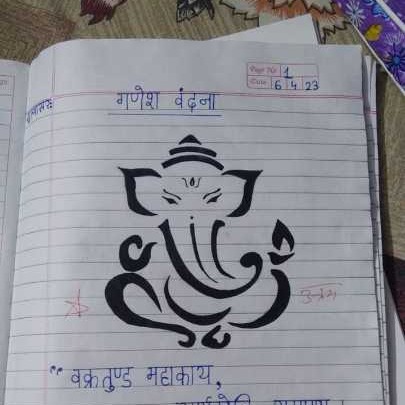 Page No. 1
Date 6 4 23
गणेश वंदना
उत्तम
" वक्रतुण्ड महाकाय,